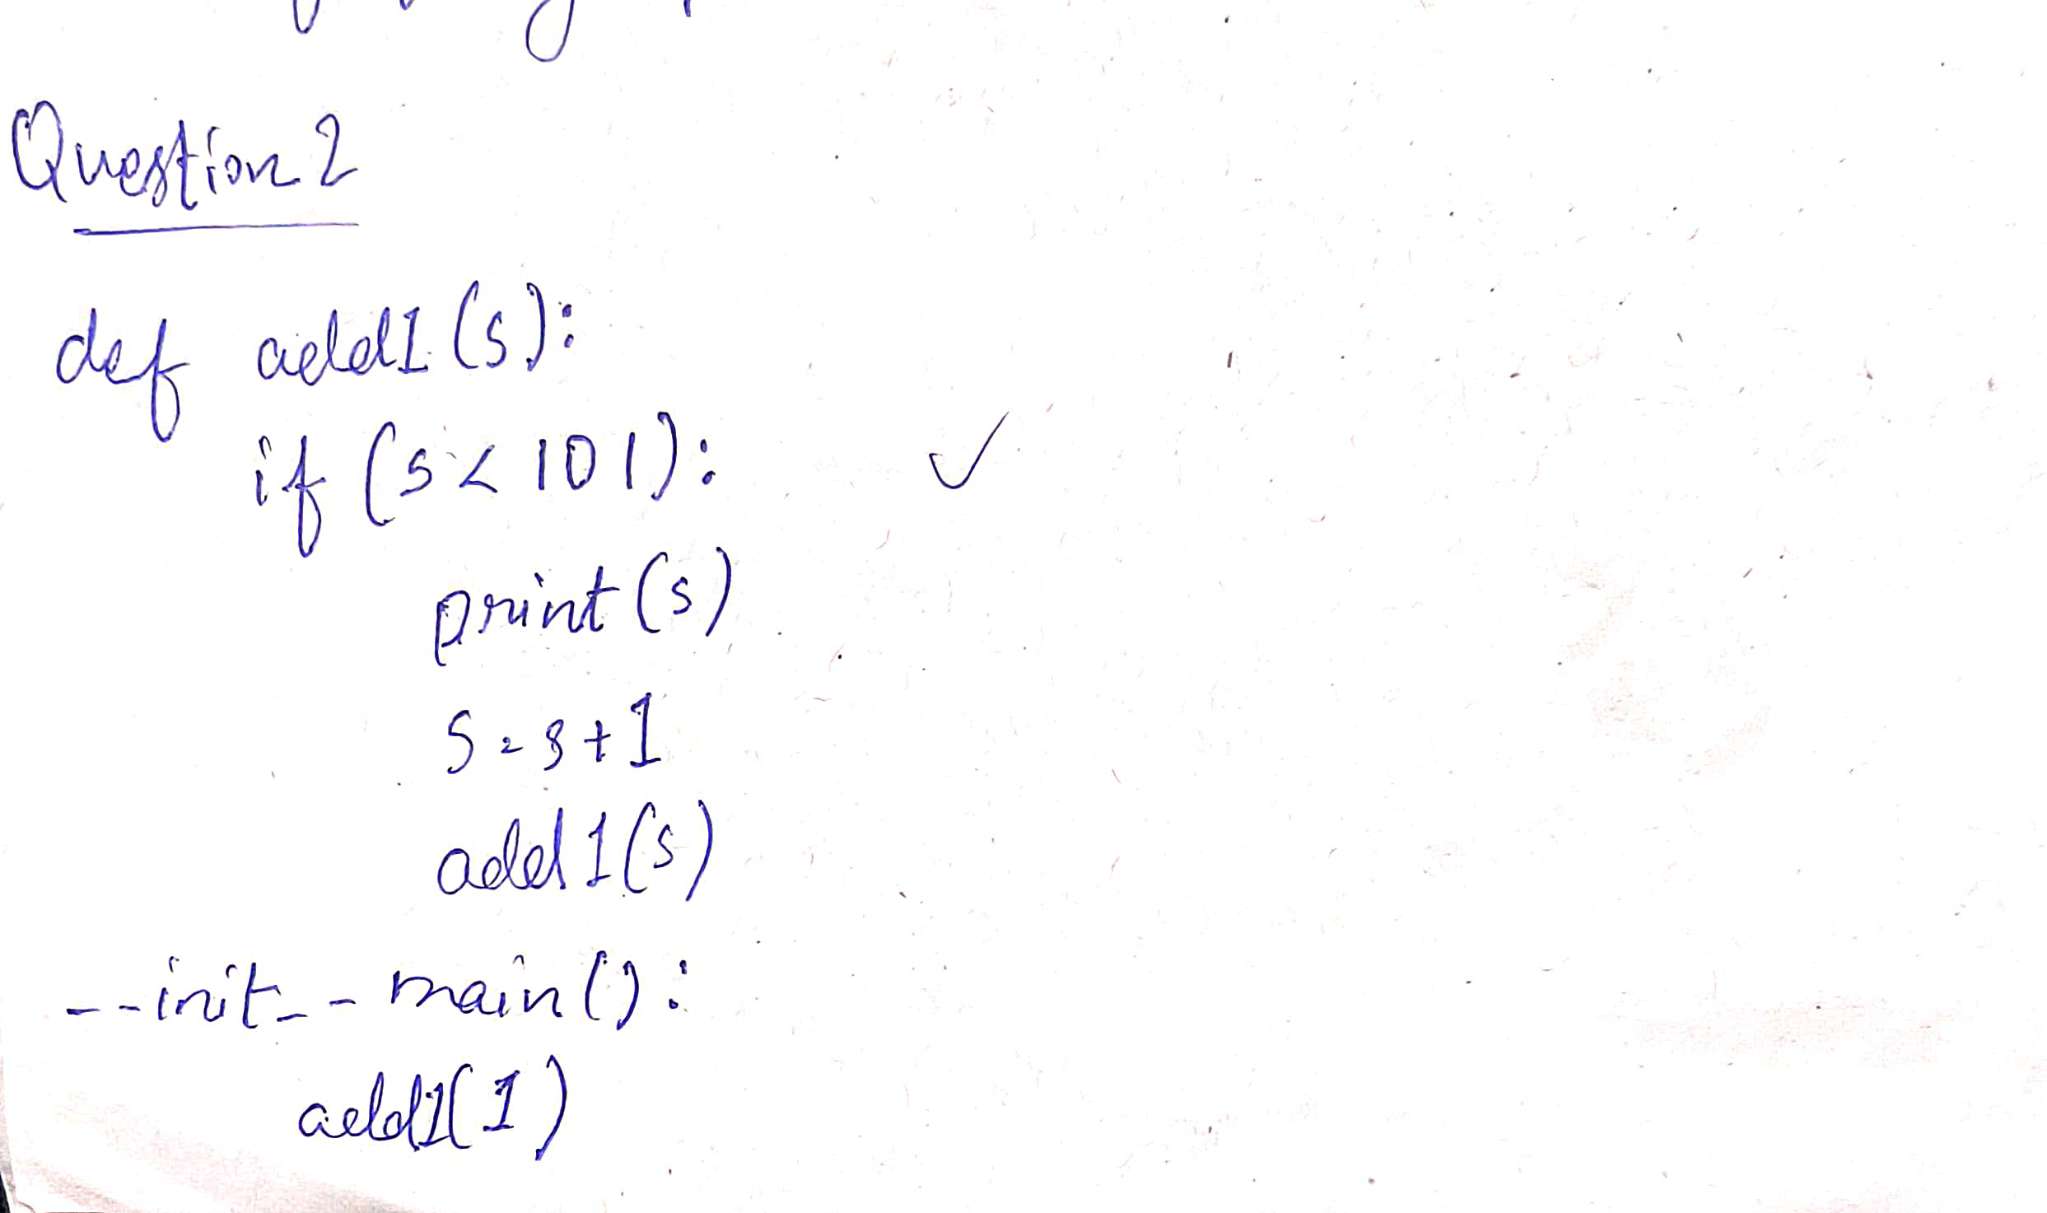 Question 2
def add1(s):
if (s < 101):
print(s)
s = s + 1
add1(s)
__init__main():
add1(1)